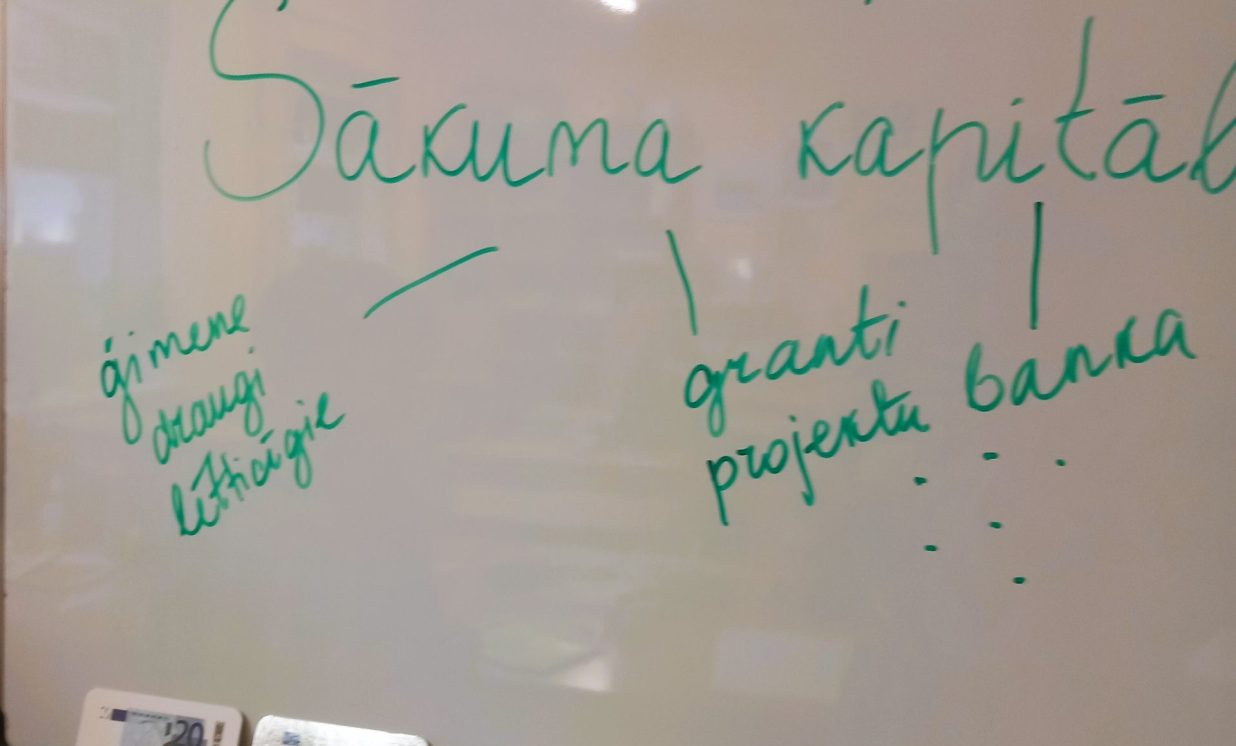 Sākuma kapitāl
ģimene
draugi
lītticīgie
granti
projektu
banka
20